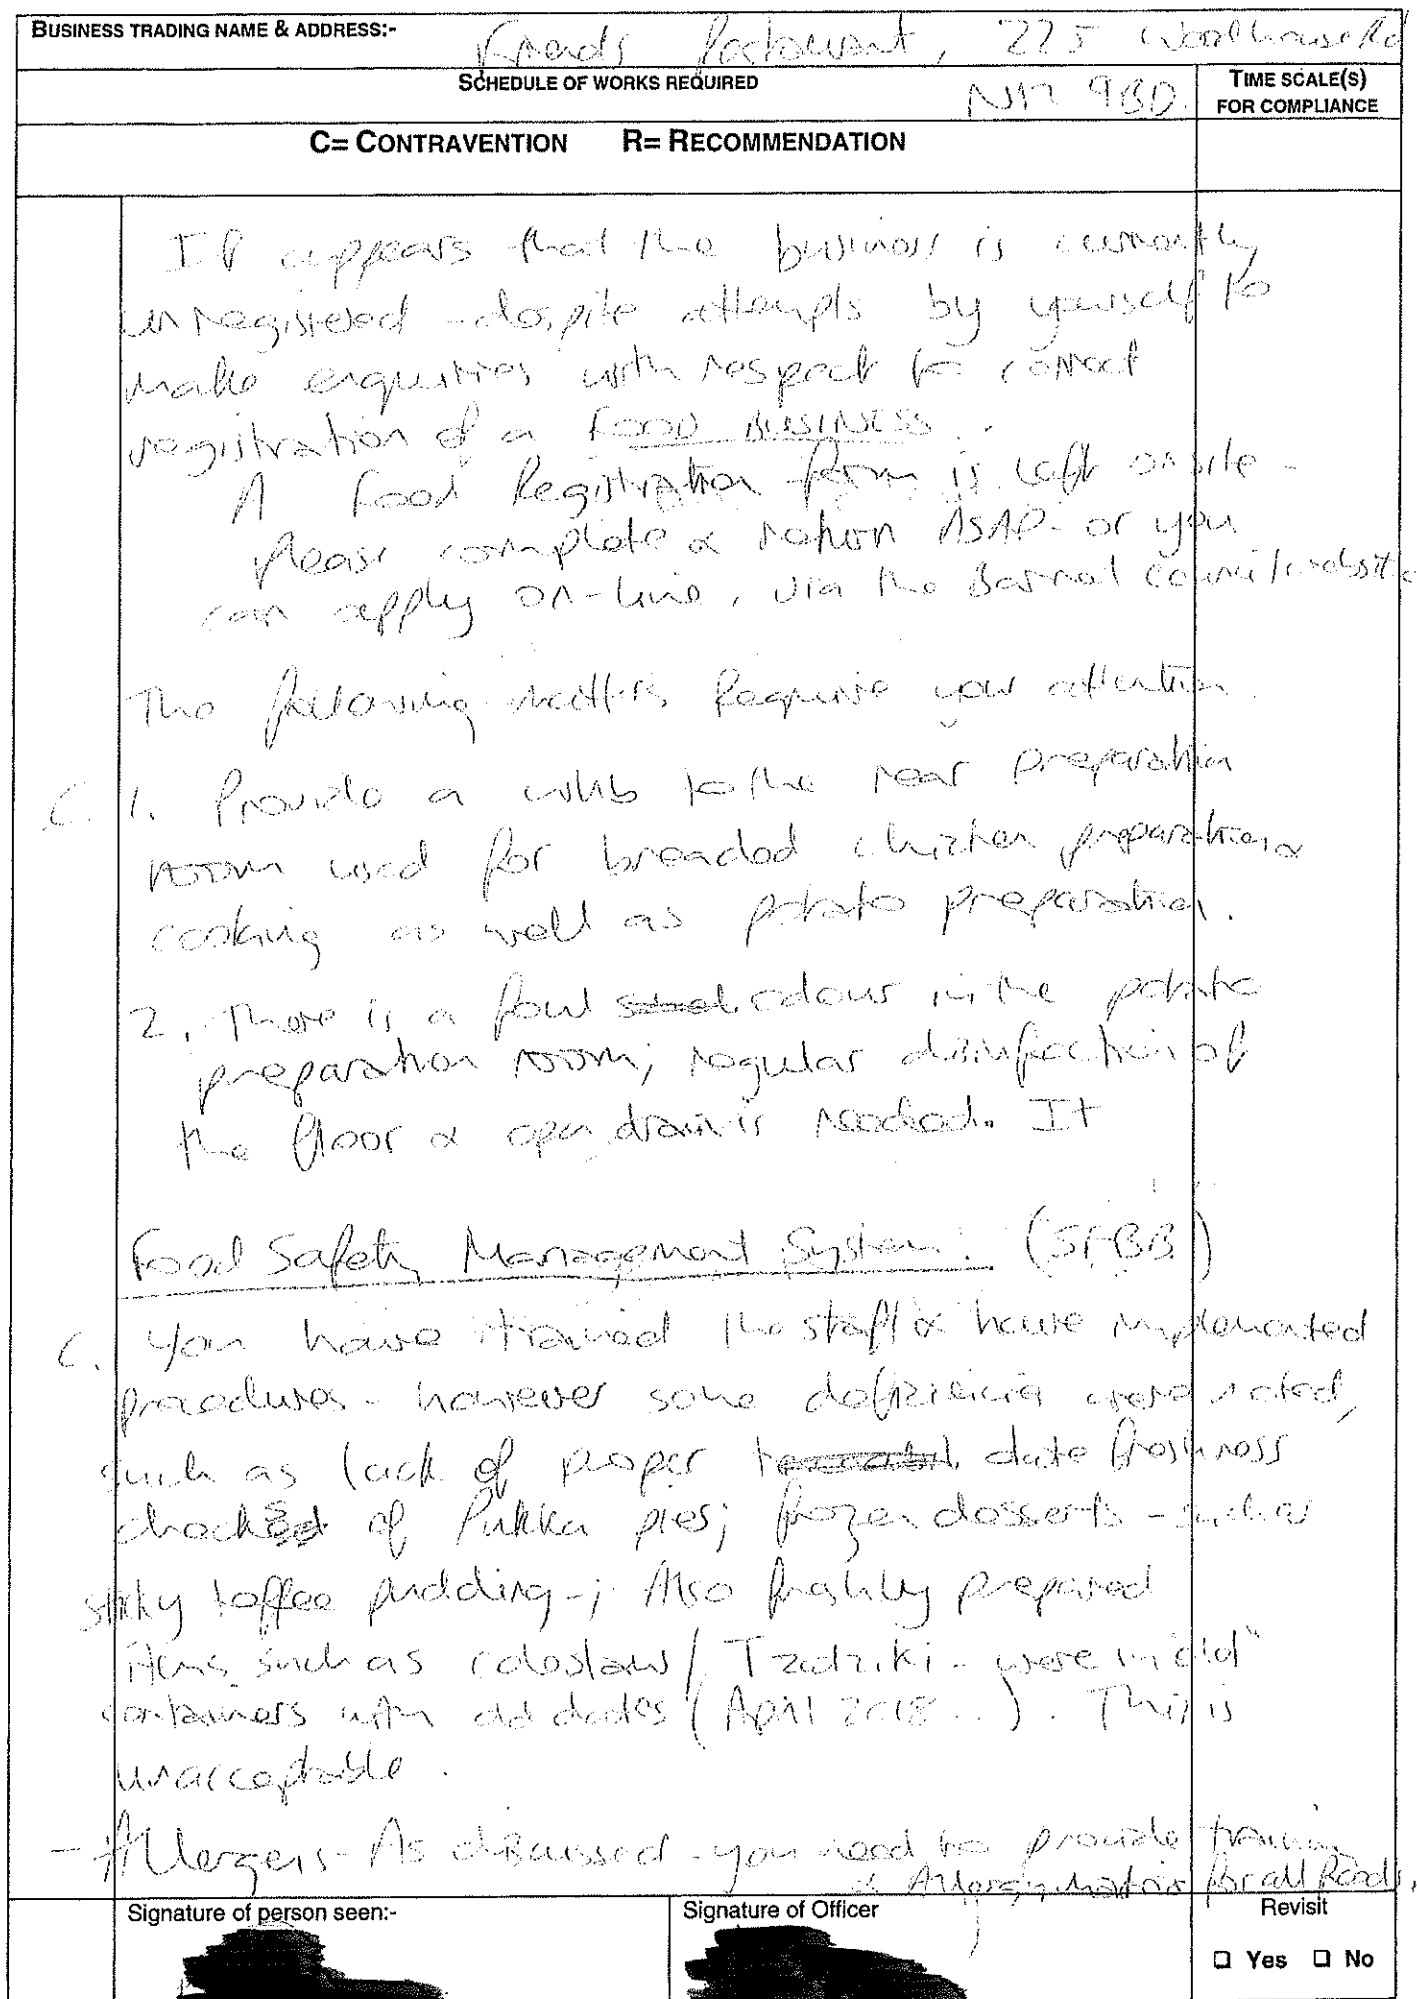 BUSINESS TRADING NAME & ADDRESS:- Friends Restaurant, 225 Woodhouse Rd
SCHEDULE OF WORKS REQUIRED N12 9BD. TIME SCALE(S)
FOR COMPLIANCE
C= CONTRAVENTION R= RECOMMENDATION
It appears that the business is currently
unregistered - despite attempts by yourself to
make enquiries with respect to correct
registration of a FOOD BUSINESS.
A Food Registration form is left onsite -
Please complete & return ASAP - or you
can apply on-line, via the Barnet Council website
The following matters Require your attention.
C. 1. Provide a whb to the rear preparation
room used for breaded chicken preparation &
cooking as well as potato preparation.
2. There is a foul odour in the potato
preparation room; regular disinfection of
the floor & open drain is needed. It
Food Safety Management System: (SFBB)
C. You have trained the staff & have implemented
procedures - however some deficiencies were noted,
such as lack of proper date freshness
checks of Pukka pies; frozen desserts - such as
sticky toffee pudding -; Also freshly prepared
items such as coleslaw / Tzatziki - were in old
containers with old dates (April 2018...). This is
unacceptable.
- Allergens - As discussed - you need to provide training
& Allergy matrix for all foods.
Signature of person seen:- Signature of Officer Revisit
Yes No